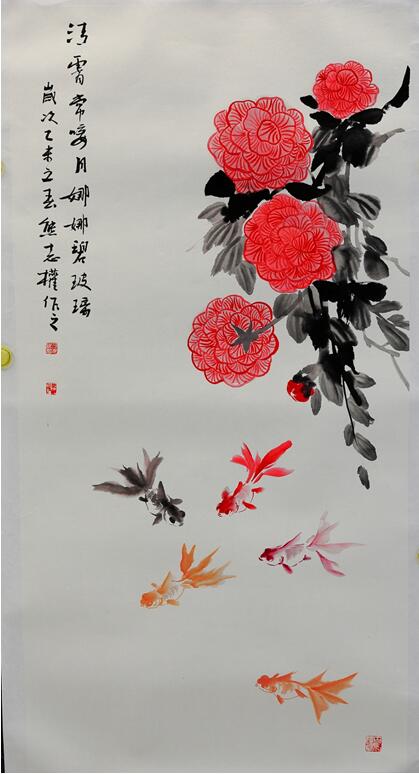 清霄常月娜娜碧玻璃
歲次乙未立春熊志權作之